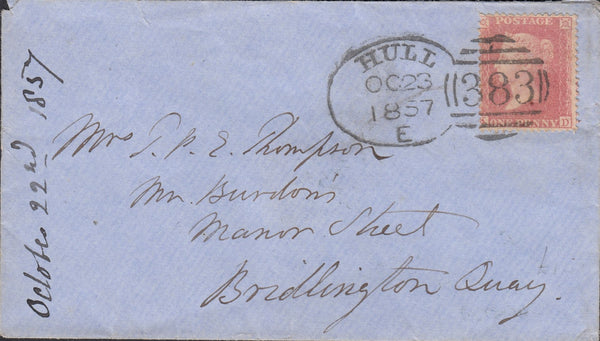 POSTAGE
HULL
OC 23
1857
E
383
ONE PENNY
D
October 22nd 1857
Mrs T. P. E. Thompson
Mr. Burdon's
Manor Street
Bridlington Quay.